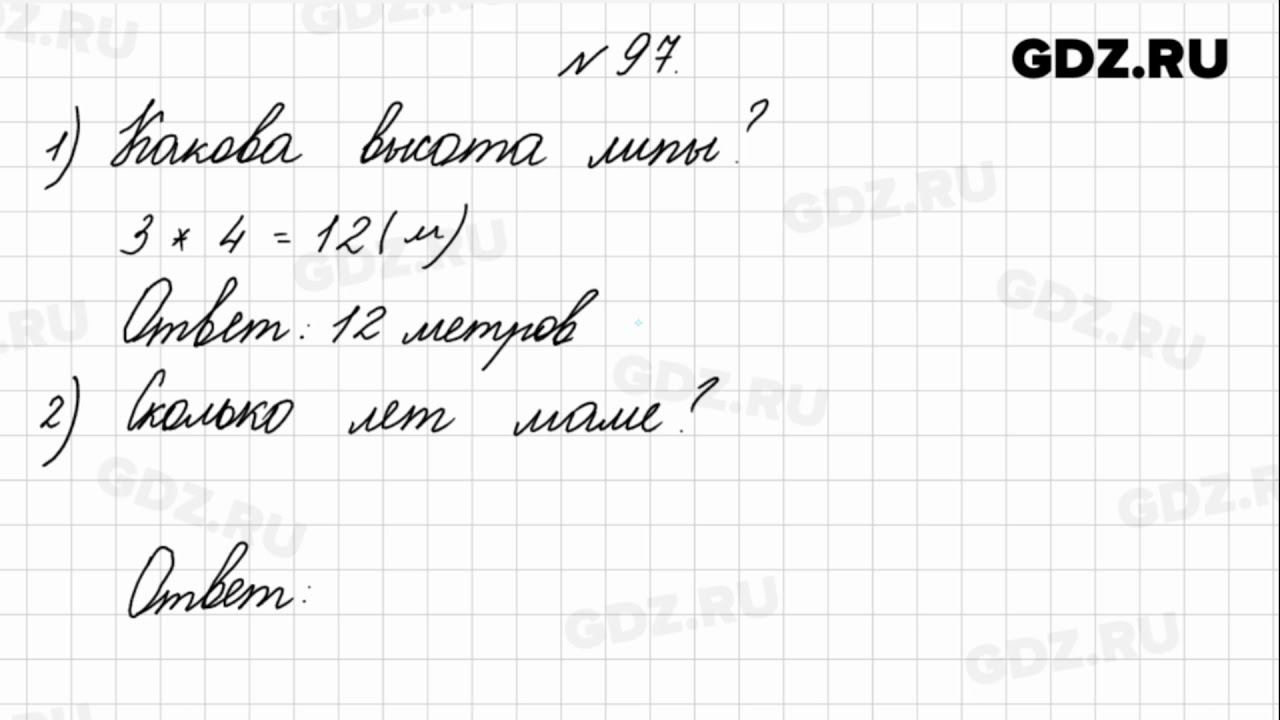 № 97.
GDZ.RU
1) Какова высота липы?
3 * 4 = 12 (м)
Ответ: 12 метров
2) Сколько лет маме?
Ответ: